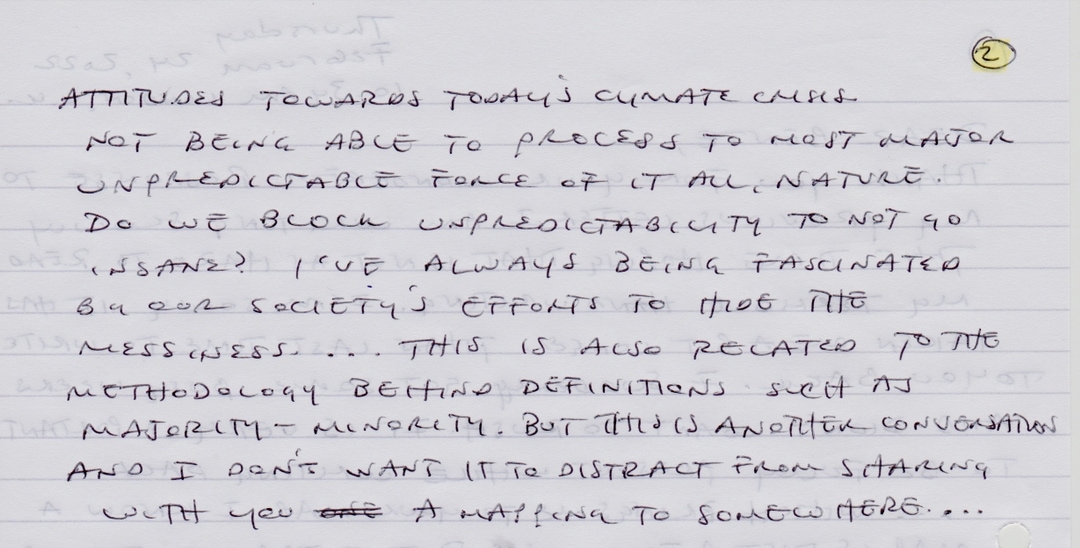 2
ATTITUDES TOWARDS TODAY'S CLIMATE CRISIS
NOT BEING ABLE TO PROCESS TO MOST MAJOR
UNPREDICTABLE FORCE OF IT ALL, NATURE.
DO WE BLOCK UNPREDICTABILITY TO NOT GO
INSANE? I'VE ALWAYS BEING FASCINATED
BY OUR SOCIETY'S EFFORTS TO HIDE THE
MESSINESS.... THIS IS ALSO RELATED TO THE
METHODOLOGY BEHIND DEFINITIONS SUCH AS
MAJORITY - MINORITY. BUT THIS IS ANOTHER CONVERSATION
AND I DON'T WANT IT TO DISTRACT FROM SHARING
WITH YOU A MAPPING TO SOMEWHERE....